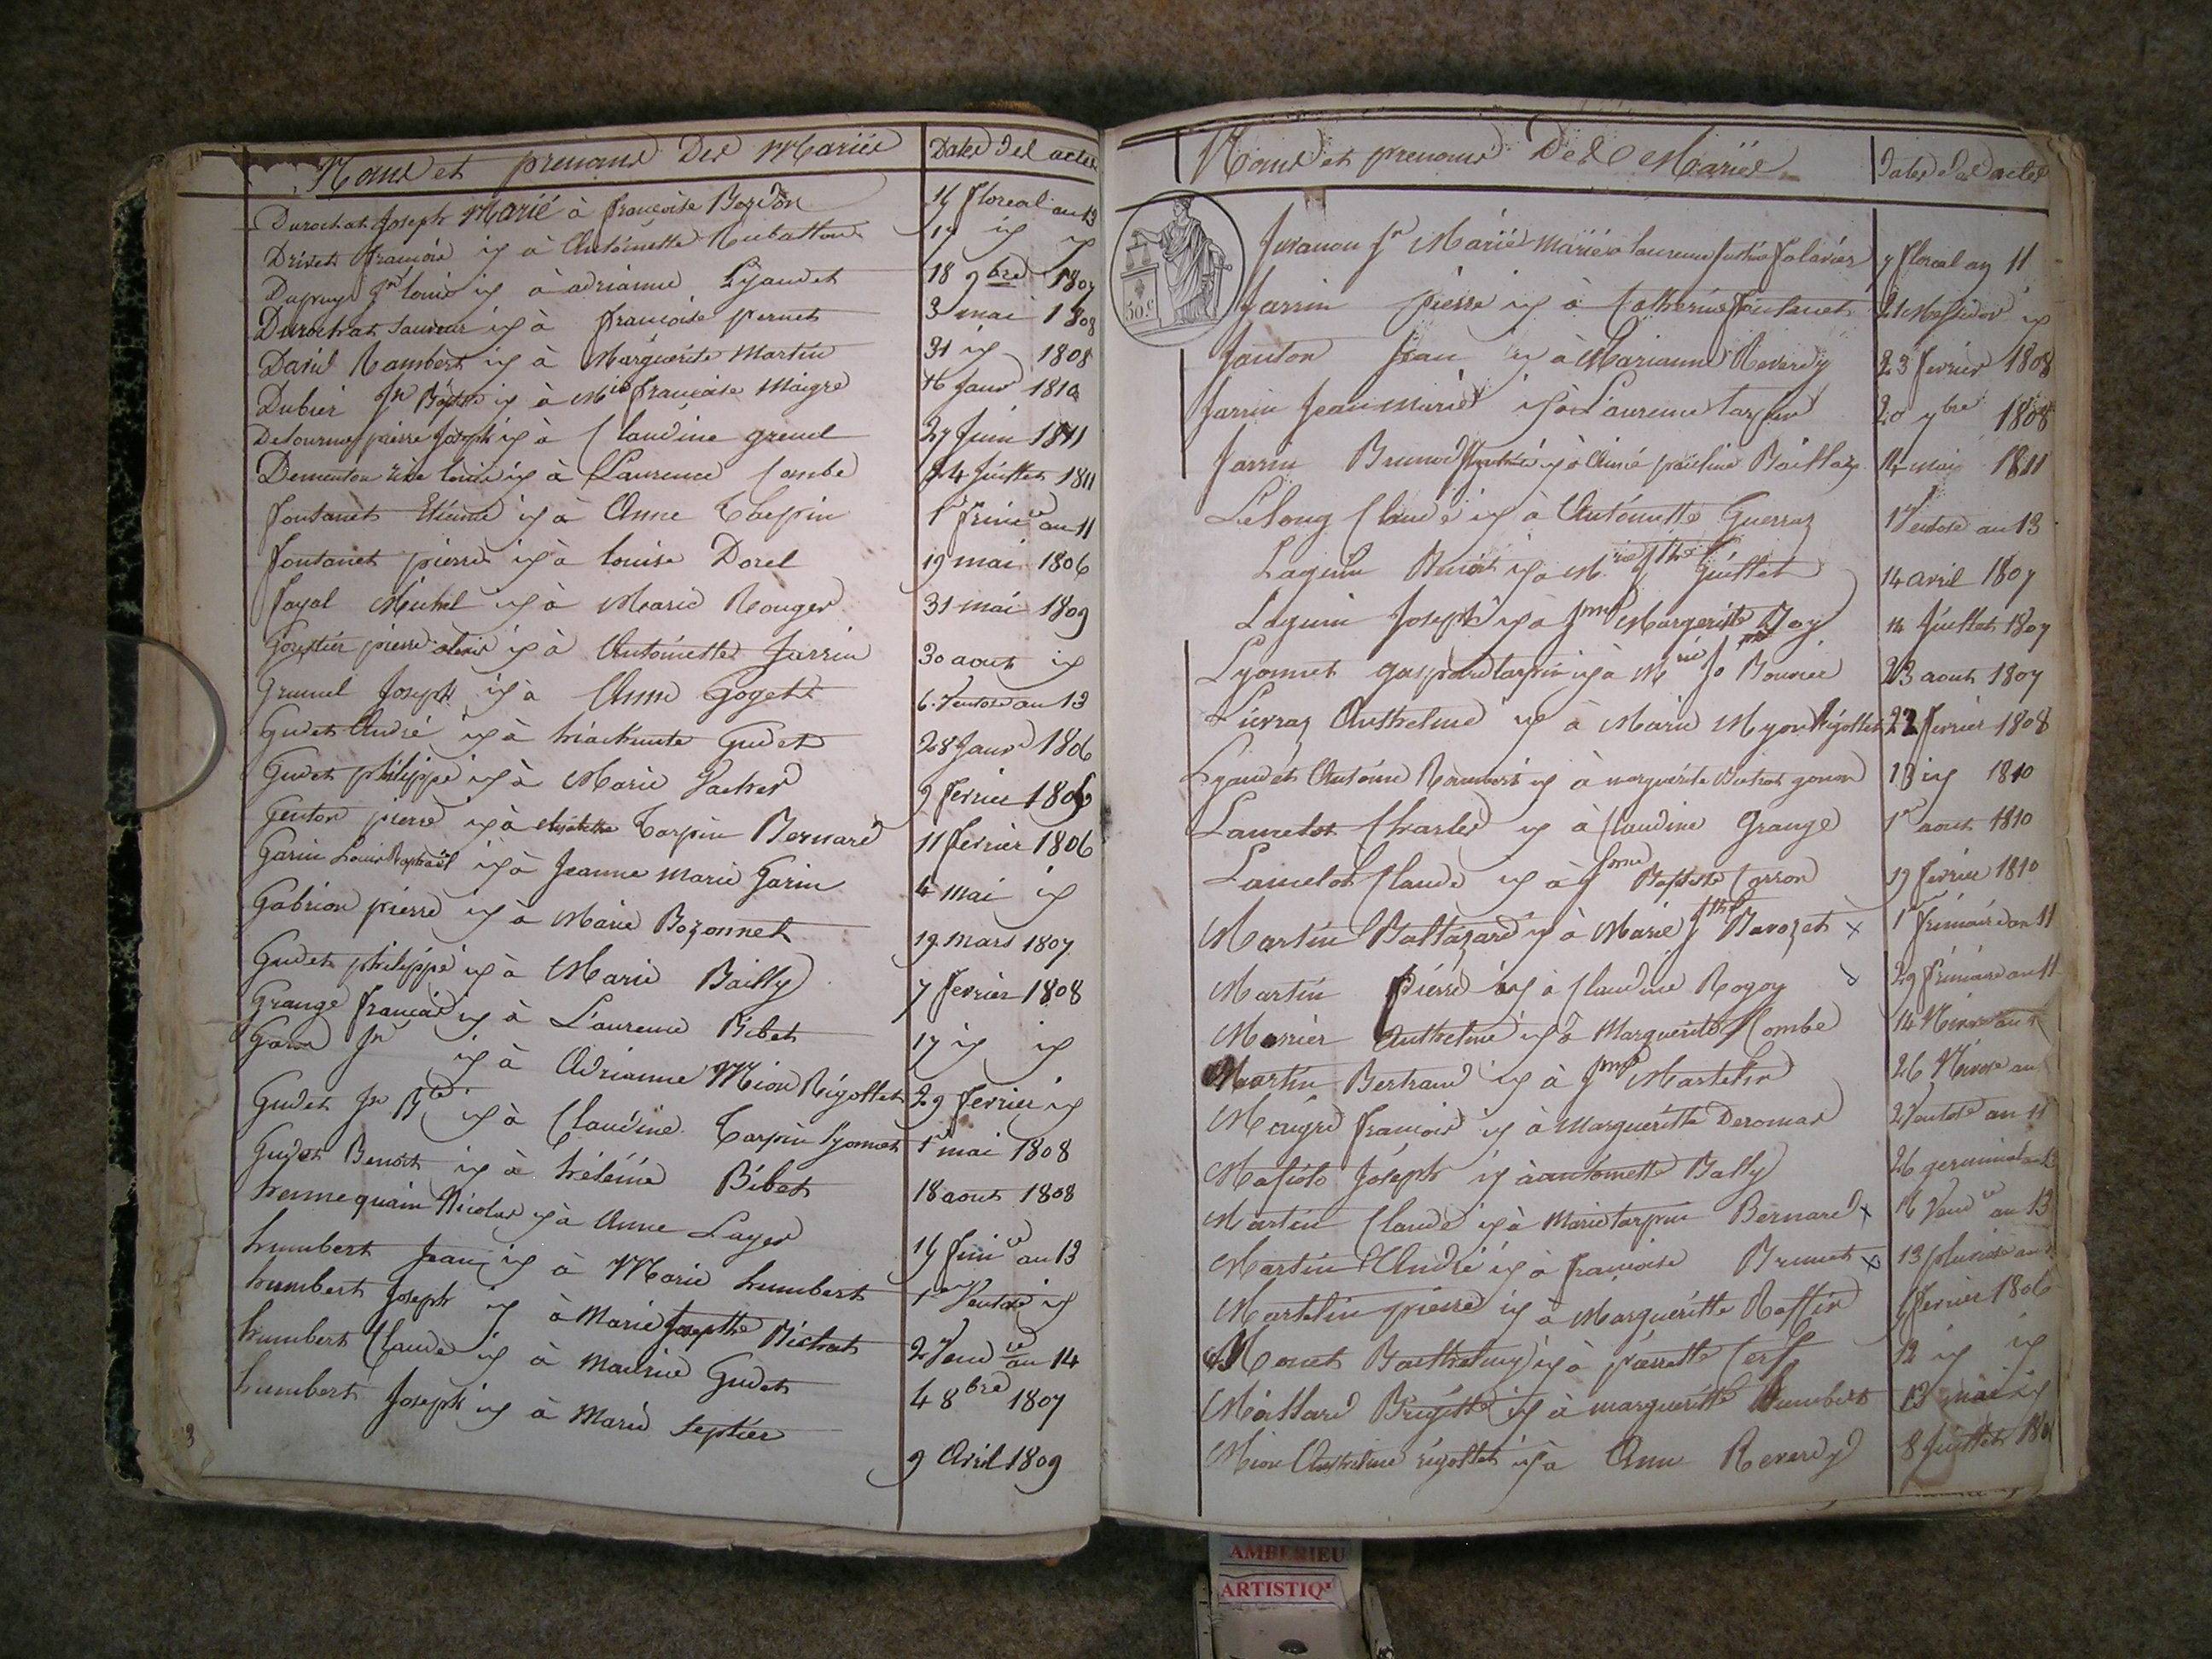 Noms et prenoms Des Mariés Dates des actes
Durochat Joseph Marié à françoise Bozon 14 floreal an 13
Drivet françois id à Antoinette Rubatton 17 id id
Dupuy Jn louis id à adrianne Lyaudet 18 9bre 1807
Durochat Sauveur id à françoise pernet 3 mai 1808
David Rambert id à Marguerite Martin 31 id 1808
Dubier Jn Bpte id à Mie françoise Maigre 16 Janr 1810
Detournes pierre Joseph id à Claudine grenel 27 Juin 1811
Dementon louis id à Laurence Combe 24 Juillet 1811
fontanet Etienne id à Anne Tarpin 1r frimre an 11
fontanet pierre id à louise Dorel 19 mai 1806
fayal Michel id à Marie Rouger 31 mai 1809
pierre id à Antoinette Jarrin 30 aout id
Grumel Joseph id à Anne Goget 6 Ventose an 13
Gudet André id à hiacinte Gudet 28 Janr 1806
Gudet philippe id à Marie Vacher 9 fevrier 1806
Genton pierre id à Tarpin Bernard 11 fevrier 1806
Garin Louis Raphaël id à Jeanne Marie Garin 4 mai id
Gabrion pierre id à Marie Bozonnet 19 mars 1807
Gudet philippe id à Marie Bailly 7 fevrier 1808
Grange françois id à Laurence Bibet 17 id id
Garin Jn id à Adrianne Mion Rigollet 29 fevrier id
Gudet Jn Bte id à Claudine Tarpin Lyonnet 1r mai 1808
Gudet Benoit id à héleine Bibet 18 aout 1808
hennequain Nicolas id à Anne Layer 14 frimre an 13
humbert Jean id à Marie humbert 1er Ventose id
humbert Joseph id à Marie Josephte Bichat 2 Vendre an 14
humbert Claude id à Maurise Gudet 4 8bre 1807
humbert Joseph id à Marie Septier 9 Avril 1809
3
Noms et prenoms Des Mariés Dates des actes
50.c
Juvanon Jn Marie Marié à laurence Justine falavier 7 floreal an 11
Jarrin pierre id à Catherine fontanet 21 Messidor id
Janton Jean id à Marianne Reverdy 23 fevrier 1808
Jarrin Jean Marie id à Laurence Tarpin 20 7bre 1808
Jarrin Bruno id à Aimé pauline Baillay 14 mai 1811
Lelong Claude id à Antoinette Guerraz 1r Ventose an 13
Laguin Benoit id à Mrie Jthe Guillet 14 avril 1807
Laguin Joseph id à Jnne Margeritte Roy 14 Juillet 1807
Lyonnet gaspard tarpin id à Mrie Jo Bouvier 23 aout 1807
Lievraz Anthelme id à Marie Myon Rigollet 22 fevrier 1808
Lyaudet Antoine Rambert id à marguerite Bichat gonon 18 id 1810
Lancelot Charles id à Claudine Grange 1r aout 1810
Lancelot Claude id à Jeanne Baptiste Carron 19 fevrier 1810
Martin Baltazard id à Marie Jthe Ravozet x 1r frimaire an 11
Martin Pierre id à Claudine Rogoy 29 frimaire an 11
Monier Anthelme id à Marguerite Combe 14 Nivose an 11
Martin Bertrand id à Jnne Martelin 26 Nivose an
Maigre françois id à Margueritte Deromas 2 Ventose an 11
Mafiolo Joseph id à antoinette Bally 26 germinal an 13
Martin Claude id à Marie tarpin Bernard x 16 Vendre an 13
Martin André id à françoise Brunet x 13 pluviose an
Martelin pierre id à Margueritte Raffin fevrier 1806
Monet Barthelemy id à pierrette Cerf 12 id id
Maillard Brigitte id à margueritte humbert 13 mai id
Mion Anthelme rigollet id à Anne Reverdy 8 Juillet 180
AMBERIEU
ARTISTIQ